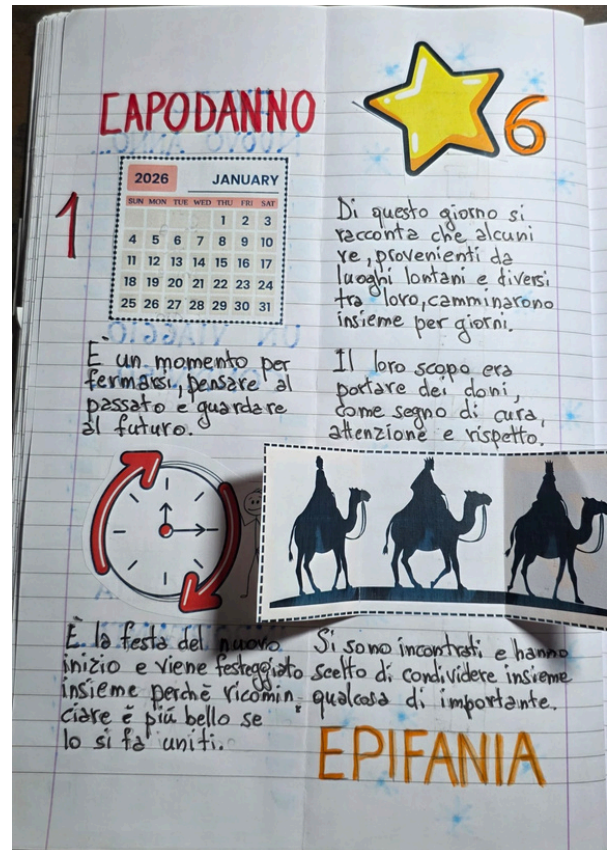 CAPODANNO
1
2026 JANUARY
SUN MON TUE WED THU FRI SAT
1 2 3
4 5 6 7 8 9 10
11 12 13 14 15 16 17
18 19 20 21 22 23 24
25 26 27 28 29 30 31
È un momento per
fermarsi, pensare al
passato e guardare
al futuro.
È la festa del nuovo
inizio e viene festeggiato
insieme perchè ricomin
ciare è più bello se
lo si fa uniti.
6
Di questo giorno si
racconta che alcuni
re, provenienti da
luoghi lontani e diversi
tra loro, camminarono
insieme per giorni.
Il loro scopo era
portare dei doni,
come segno di cura,
attenzione e rispetto.
Si sono incontrati e hanno
scelto di condividere insieme
qualcosa di importante.
EPIFANIA